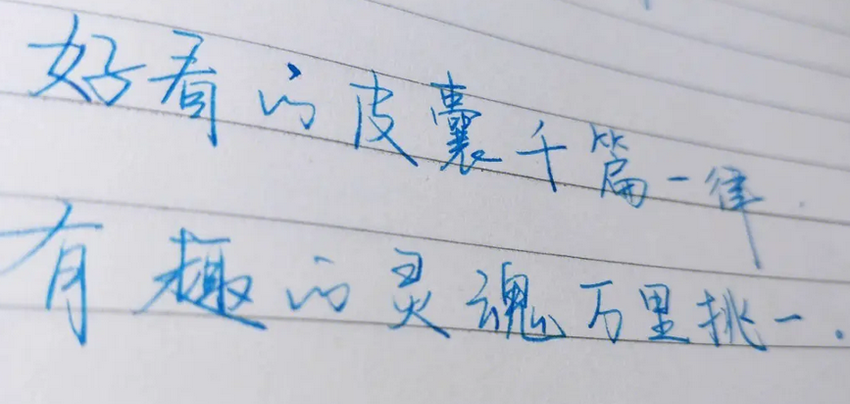 好看的皮囊千篇一律.
有趣的灵魂万里挑一.